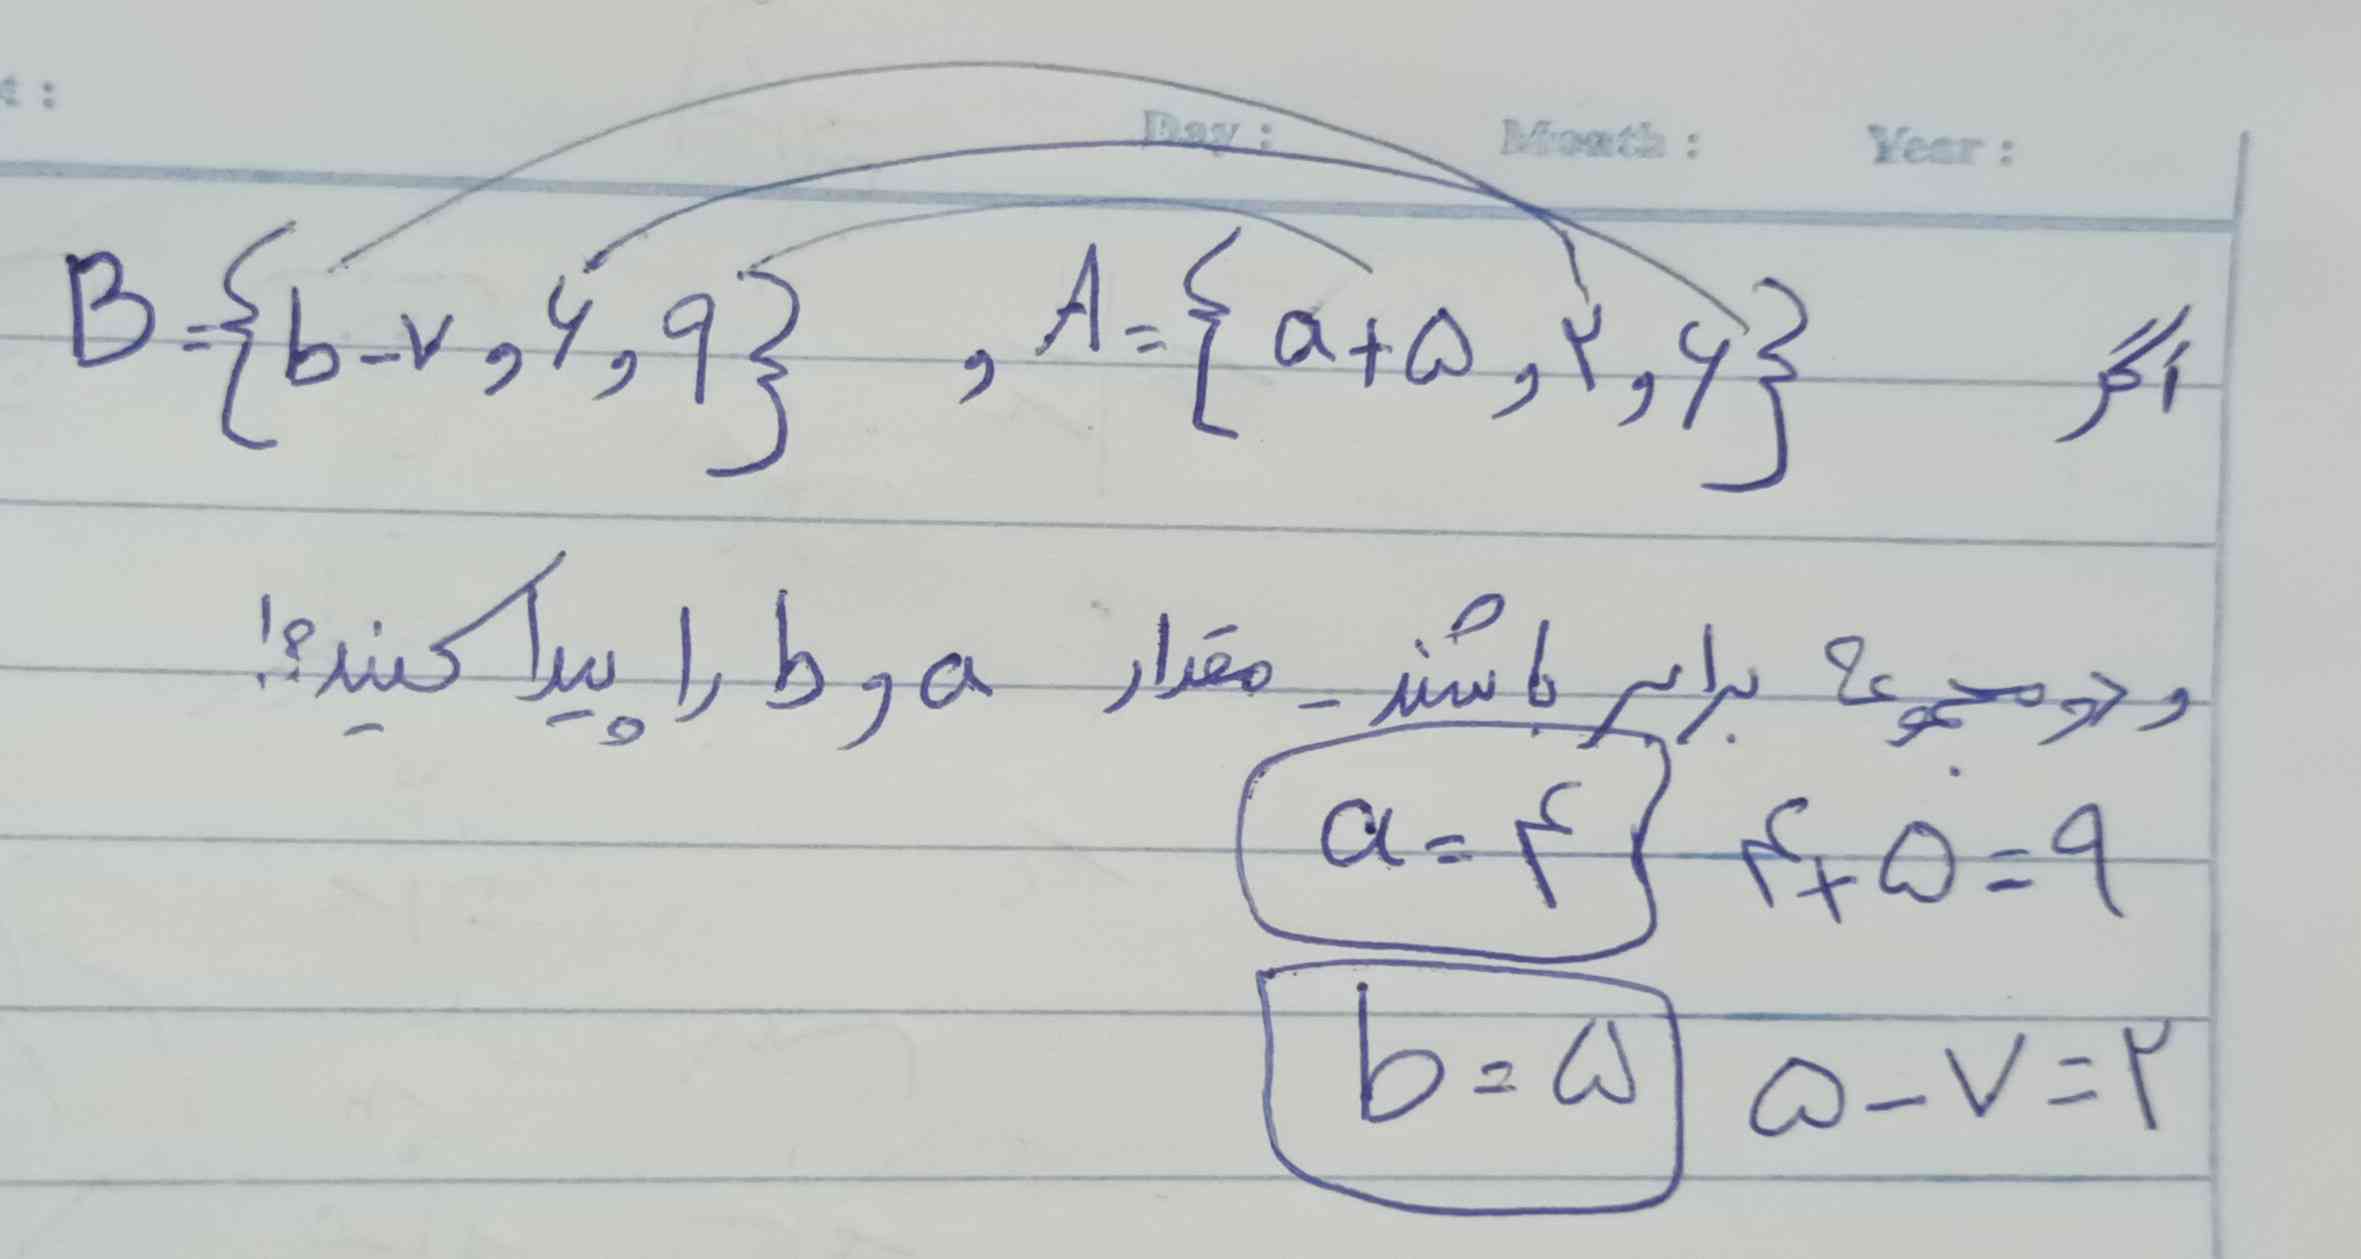 Day : Month : Year :
اگر A={a+۵,۲,۶} , B={b-۷,۶,۹}
و دو مجموعه برابر باشند - مقدار a و b را پیدا کنید؟!
a=۴ ۴+۵=۹
b=۵ ۵-۷=۲